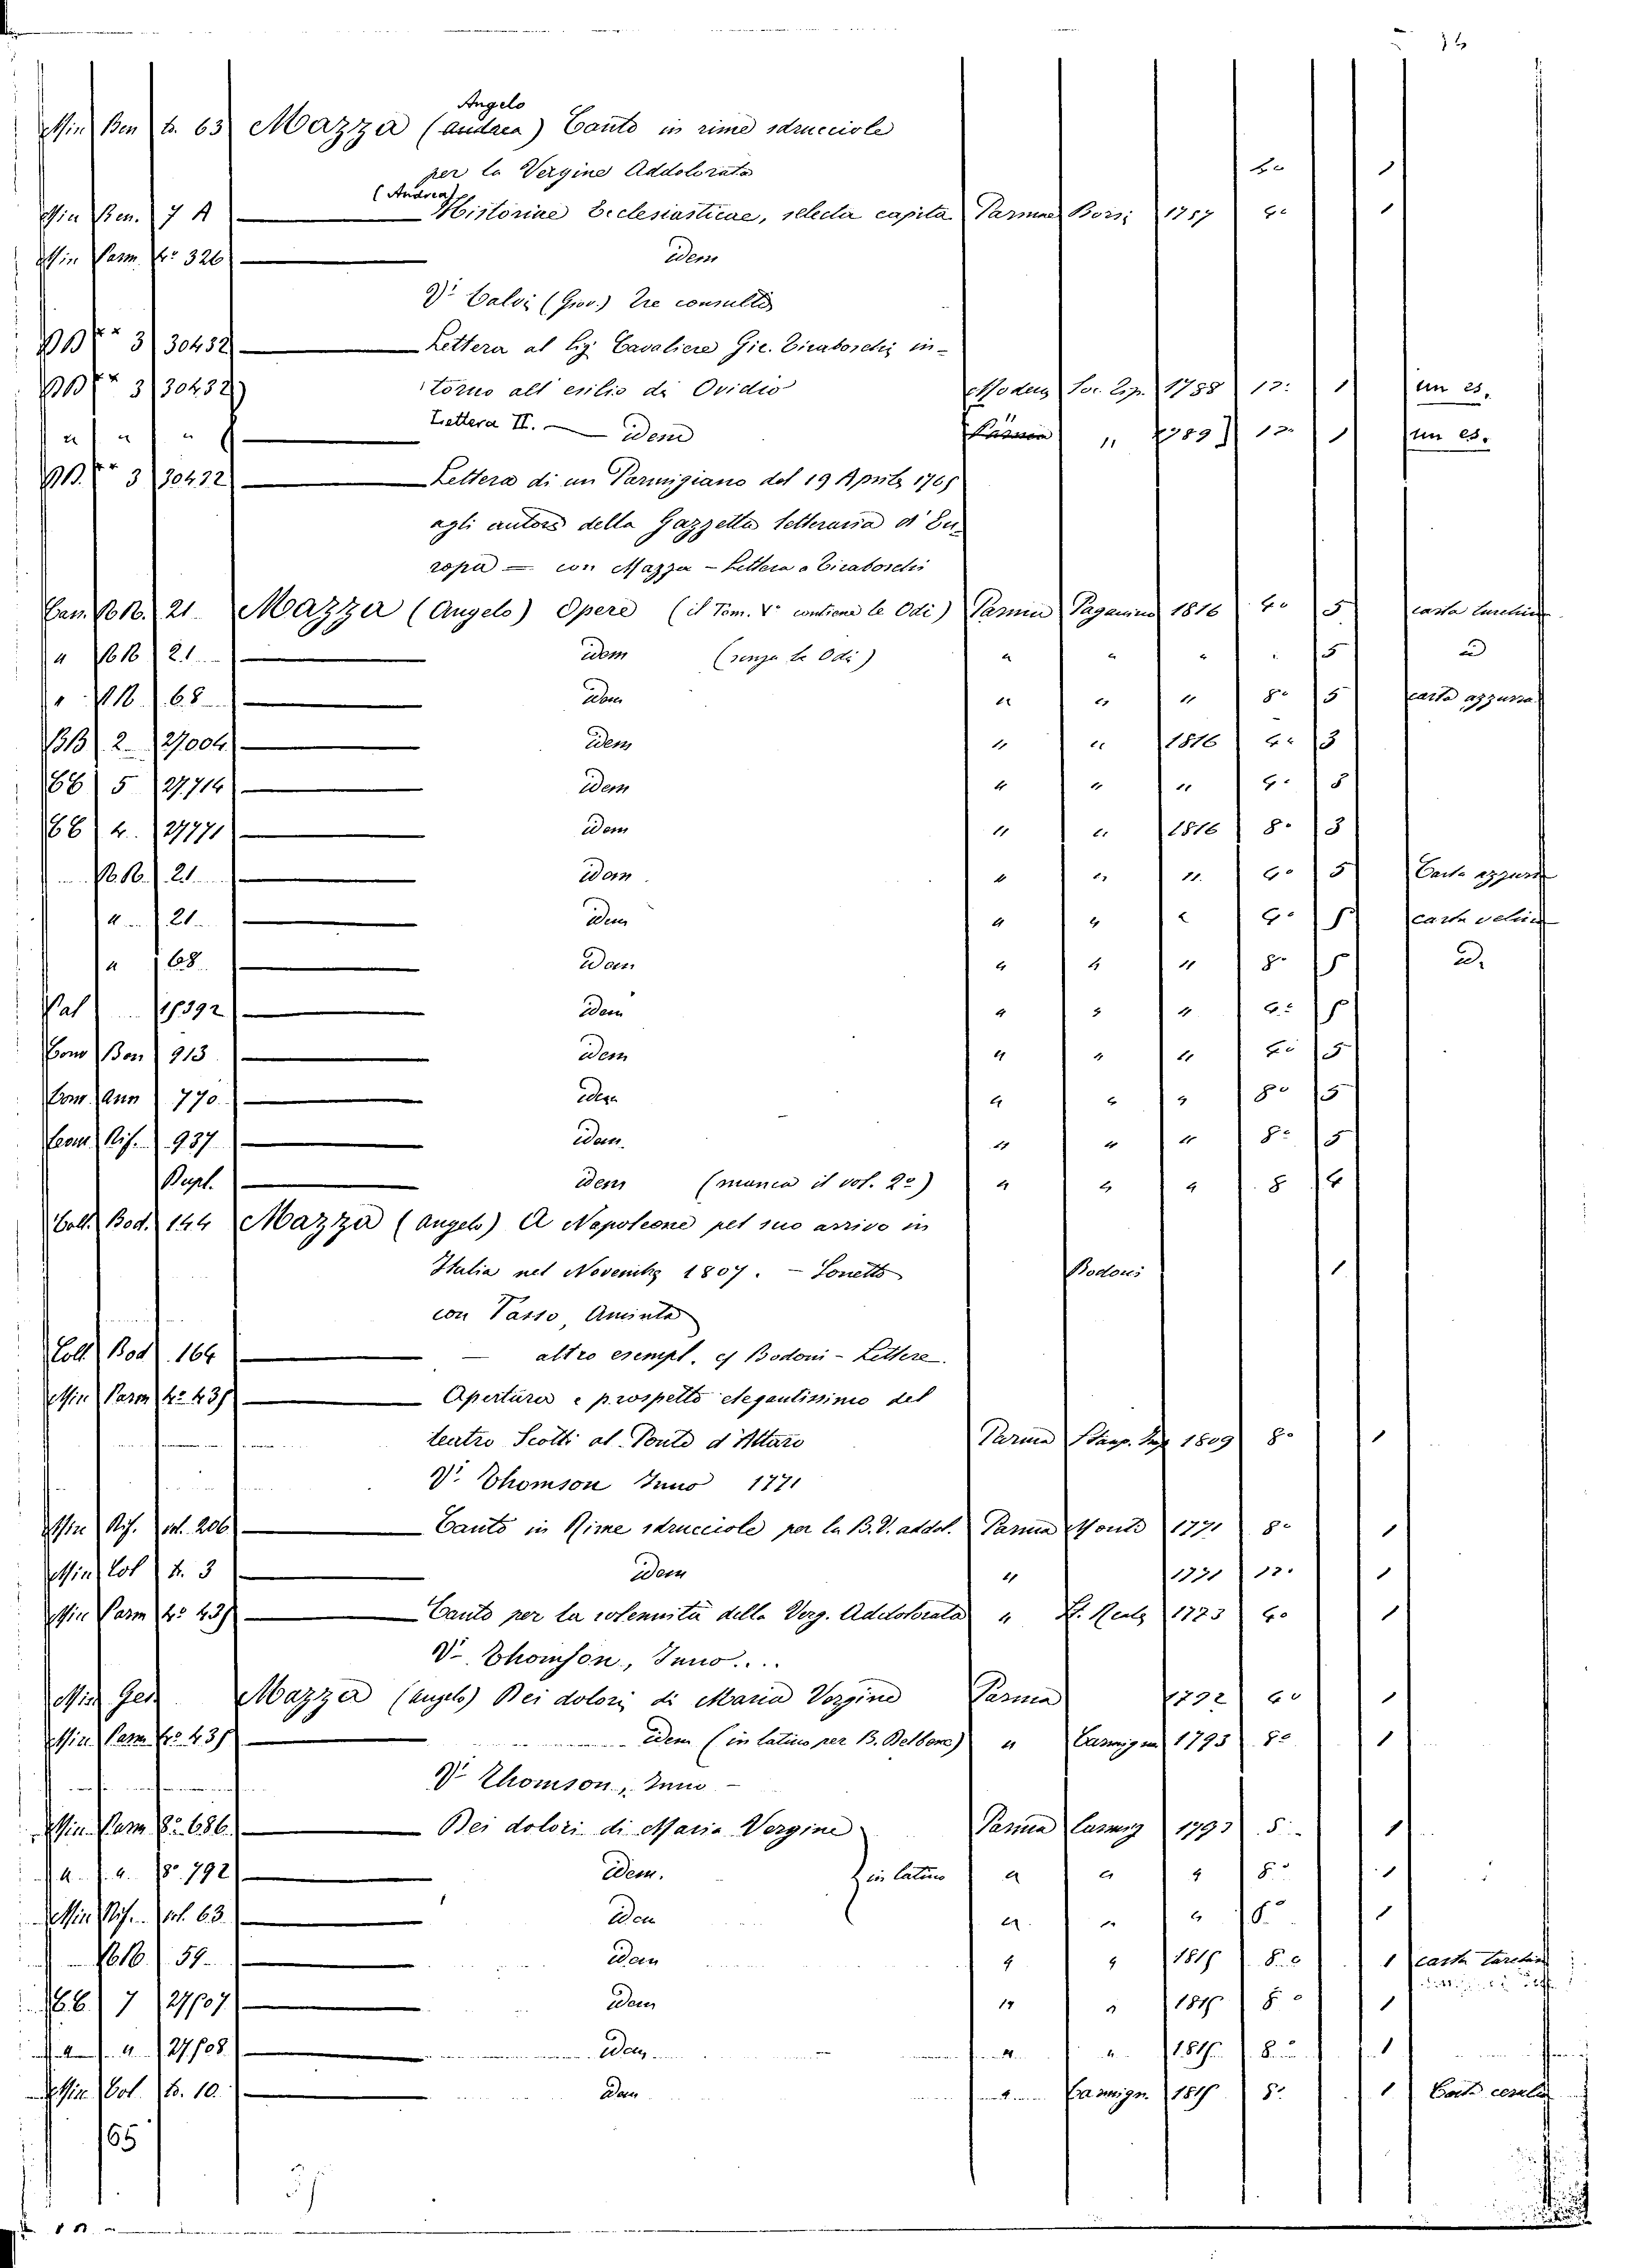 Min Ben 4. 63 Mazza (Andrea) Angelo Canto in rime sdrucciole
per la Vergine Addolorata 4o 1
Min Ben. 7 A (Andrea) Historiae Ecclesiasticae, selecta capita Parmae Borsi 1757 4o 1
Min Parm. 4o 326 idem
Vi Calvi (Giov.) Tre consulti
3 30432 Lettera al Sig. Cavaliere Gir. Tiraboschi in-
3 30432 torno all' esilio di Ovidio Modena Soc. Tip. 1788 12. 1 un es.
" " " Lettera II. — idem Parma " 1789 12. 1 un es.
3 30432 Lettera di un Parmigiano del 19 Aprile 1765
agli autori della Gazzetta letteraria d' Eu-
ropa — con Mazza - Lettera a Tiraboschi
21 Mazza (Angelo) Opere (il Tom. Vo contiene le Odi) Parma Paganino 1816 4o 5 carta turchina
" 21 idem (senza le Odi) " " " " 5 id
" 68 idem " " " 8o 5 carta azzurra
BB 2 27004 idem " " 1816 4o 3
5 27714 idem " " " 4o 5
4 27771 idem " " 1816 8o 3
21 idem " " " 4o 5 Carta azzurra
" 21 idem " " " 4o 5 carta velina
" 68 idem " " " 8o 5 id.
Pal 15392 idem " " " 4o 5
Com Bon 913 idem " " " 4o 5
Com. Ann 770 idem " " " 8o 5
Com Ris. 937 idem " " " 8o 5
Dupl. idem (manca il vol. 2o) " " " 8 4
Coll. Bod. 144 Mazza (Angelo) A Napoleone pel suo arrivo in
Italia nel Novembre 1807. - Sonetto Bodoni 1
con Tasso, Aminta
Coll. Bod. 164 — altro esempl. cf Bodoni - Lettere.
Min Parm 4o 435 Apertura e prospetto elegantissimo del
teatro Scotti al Ponte d'Attaro Parma Stamp. Imp 1809 8o 1
Vi Thomson Inno 1771
Min Ris. vol. 206 Canto in Rime sdrucciole per la B.V. addol. Parma Monti 1771 8o 1
Min Col 4. 3 idem " 1771 12. 1
Min Parm 4o 435 Canto per la solennità della Verg. Addolorata " St. Reale 1773 4o 1
Vi Thomson, Inno....
Min Ges Mazza (Angelo) Dei dolori di Maria Vergine Parma 1792 4o 1
Min Parm 4o 435 idem (in latino per B. Belboni) " Carmignani 1793 8o 1
Vi Thomson, Inno -
Min Parm 8o 686 Dei dolori di Maria Vergine Parma Carmig 1793 8. 1
" " 8o 792 idem. in latino " " " 8o 1
Min Ris. vol. 63 idem " " " 8o 1
59 idem " " 1815 8o 1 carta turchina
7 27507 idem " " 1815 8o 1
" " 27508 idem " " 1815 8 1
Min Col. 8. 10 idem " Carmign. 1815 8o 1 Carta cerulea
165